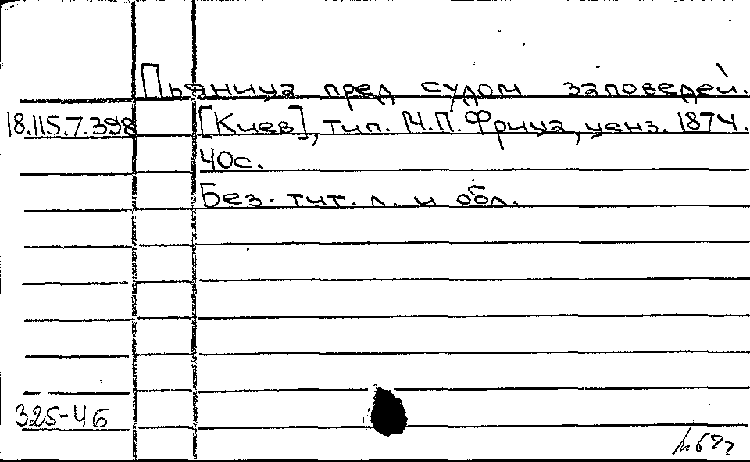 Пьяница пред судом заповедей.
18.115.7.398 [Киев], тип. М.П. Фрица, ценз. 1874.
40с.
Без. тит. л. и обл.
325-46